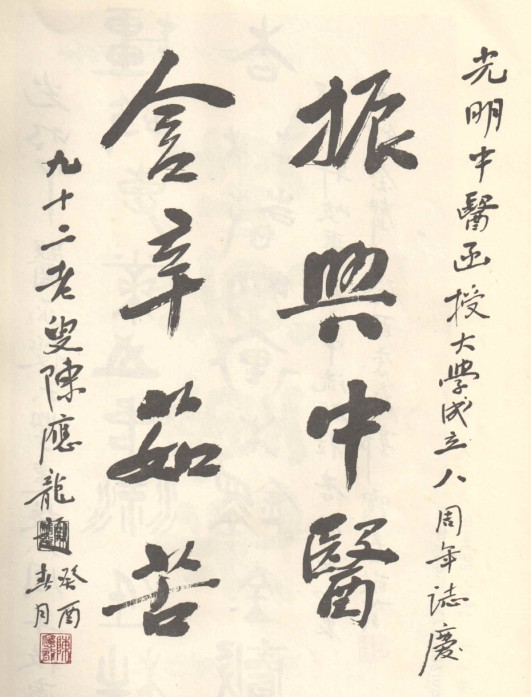 光明中醫函授大學成立八周年誌慶
振興中醫
含辛茹苦
九十二老叟陳應龍題
癸酉
春月